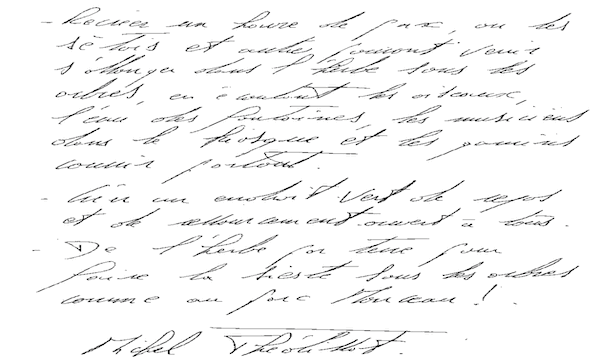 - Recréer un havre de paix, où les
Sétois et autres pourront venir
s'allonger dans l'herbe sous les
arbres, en écoutant les oiseaux,
l'eau des fontaines, les musiciens
dans le kiosque et les gamins
courir partout.
- Créer un endroit vert de repos
et de ressourcement ouvert à tous.
- De l'herbe par terre pour
faire la sieste sous les arbres
comme au parc Monceau !
Michel